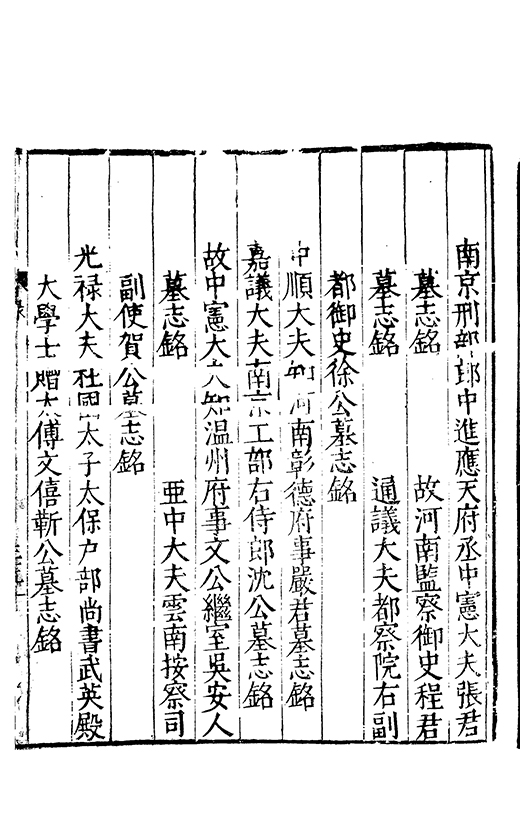 南京刑部郎中進應天府丞中憲大夫張君
墓志銘 故河南監察御史程君
墓志銘 通議大夫都察院右副
都御史徐公墓志銘
中順大夫知河南彰德府事嚴君墓志銘
嘉議大夫南京工部右侍郎沈公墓志銘
故中憲大夫知温州府事文公繼室吳安人
墓志銘 亜中大夫雲南按察司
副使賀公墓志銘
光禄大夫柱國太子太保户部尚書武英殿
大學士贈太傅文僖靳公墓志銘